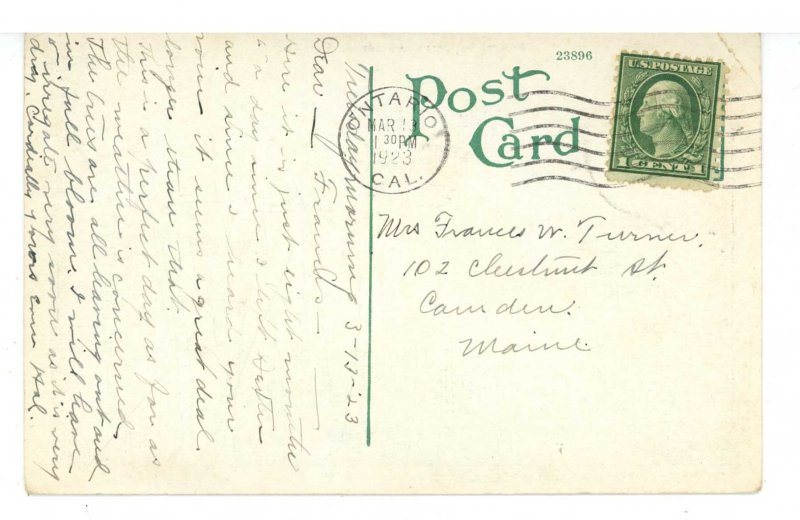 23896
Post
Card
ONTARIO
MAR 13
1 30 PM
1923
CAL.
U.S. POSTAGE
1 CENT 1
Mrs Frances W. Turner.
102 Chestnut St.
Camden.
Maine.
Tuesday morning 3-13-'23
Dear Friends—
Here it is just eight months
& a day since I left
and since I heard your
voice it seems a great deal
longer than that.
This is a perfect day as far as
the weather is concerned.
The trees are all leaving out and
in full bloom. I will have
to irrigate very soon as it is very
dry. Cordially yours Hal.